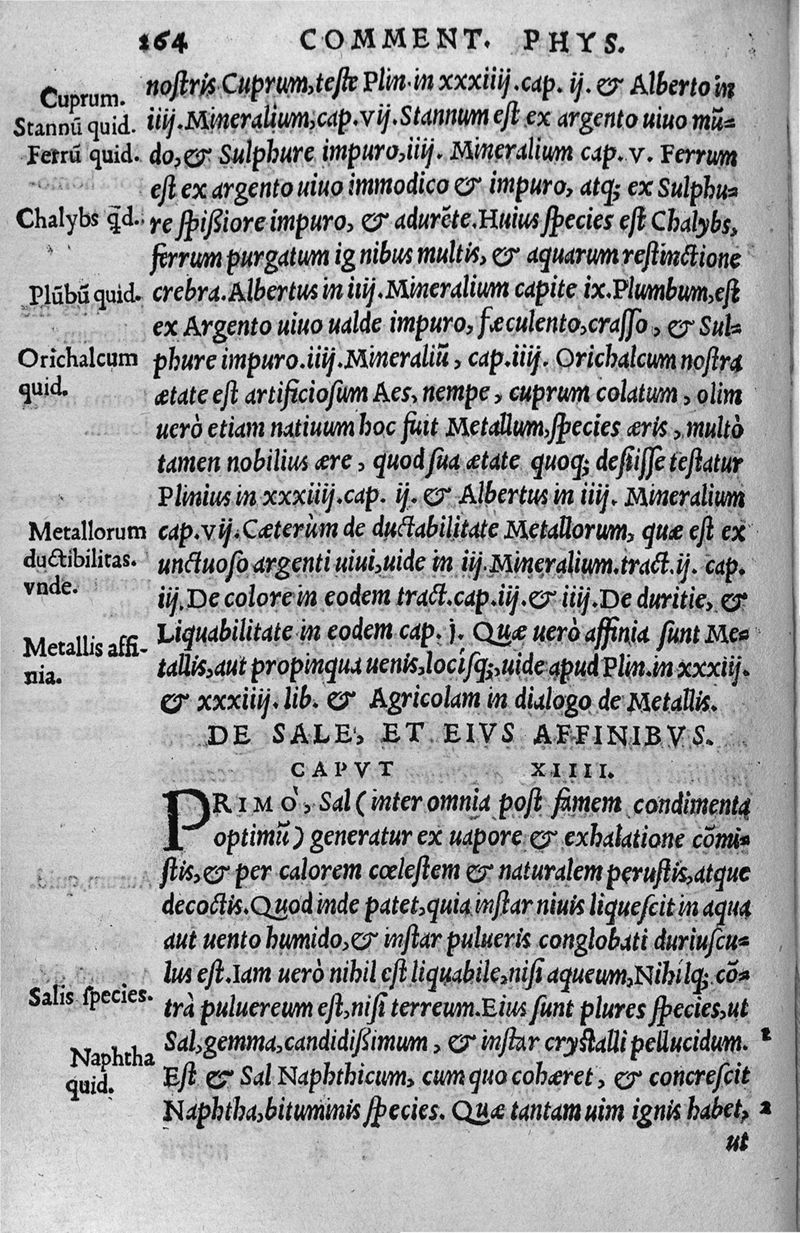 164 COMMENT. PHYS.
Cuprum.
noſtris Cuprum, teſte Plin. in xxxiiij. cap. ij. & Alberto in
Stannū quid.
iiij. Mineralium, cap. vij. Stannum eſt ex argento uiuo mū-
Ferrū quid.
do, & Sulphure impuro, iiij. Mineralium cap. v. Ferrum
eſt ex argento uiuo immodico & impuro, atq; ex Sulphu-
Chalybs qd.
re ſpißiore impuro, & adurēte. Huius ſpecies eſt Chalybs,
ferrum purgatum ignibus multis, & aquarum reſtinctione
Plūbū quid.
crebra. Albertus in iiij. Mineralium capite ix. Plumbum, eſt
ex Argento uiuo ualde impuro, fæculento, craſſo, & Sul-
Orichalcum
quid.
phure impuro. iiij. Mineraliū, cap. iiij. Orichalcum noſtra
ætate eſt artificioſum Aes, nempe, cuprum colatum, olim
uerò etiam natiuum hoc fuit Metallum, ſpecies æris, multò
tamen nobilius ære, quod ſua ætate quoq; deſijſſe teſtatur
Plinius in xxxiiij. cap. ij. & Albertus in iiij. Mineralium
Metallorum
ductibilitas.
vnde.
cap. vij. Cæterùm de ductabilitate Metallorum, quæ eſt ex
unctuoſo argenti uiui, uide in iij. Mineralium. tract. ij. cap.
iij. De colore in eodem tract. cap. iij. & iiij. De duritie, &
Metallis affi-
nia.
Liquabilitate in eodem cap. j. Quæ uerò affinia ſunt Me-
tallis, aut propinqua uenis, lociſq;, uide apud Plin. in xxxiij.
& xxxiiij. lib. & Agricolam in dialogo de Metallis.
DE SALE, ET EIVS AFFINIBVS.
CAPVT XIIII.
PRIMÒ, Sal (inter omnia poſt famem condimenta
optimū) generatur ex uapore & exhalatione cōmi-
ſtis, & per calorem cœleſtem & naturalem peruſtis, atque
decoctis. Quod inde patet, quia inſtar niuis liqueſcit in aqua
aut uento humido, & inſtar pulueris conglobati duriuſcu-
lus eſt. Iam uerò nihil eſt liquabile, niſi aqueum, Nihilq; cō-
Salis ſpecies.
trà puluereum eſt, niſi terreum. Eius ſunt plures ſpecies, ut
Sal, gemma, candidißimum, & inſtar cryſtalli pellucidum. 1
Naphtha
quid.
Eſt & Sal Naphthicum, cum quo cohæret, & concreſcit
Naphtha, bituminis ſpecies. Quæ tantam uim ignis habet, 2
ut